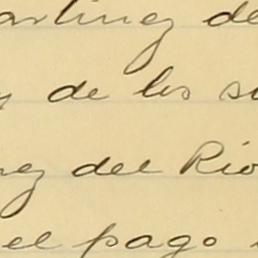 artinez de
y de los su
nez del Río
el pago